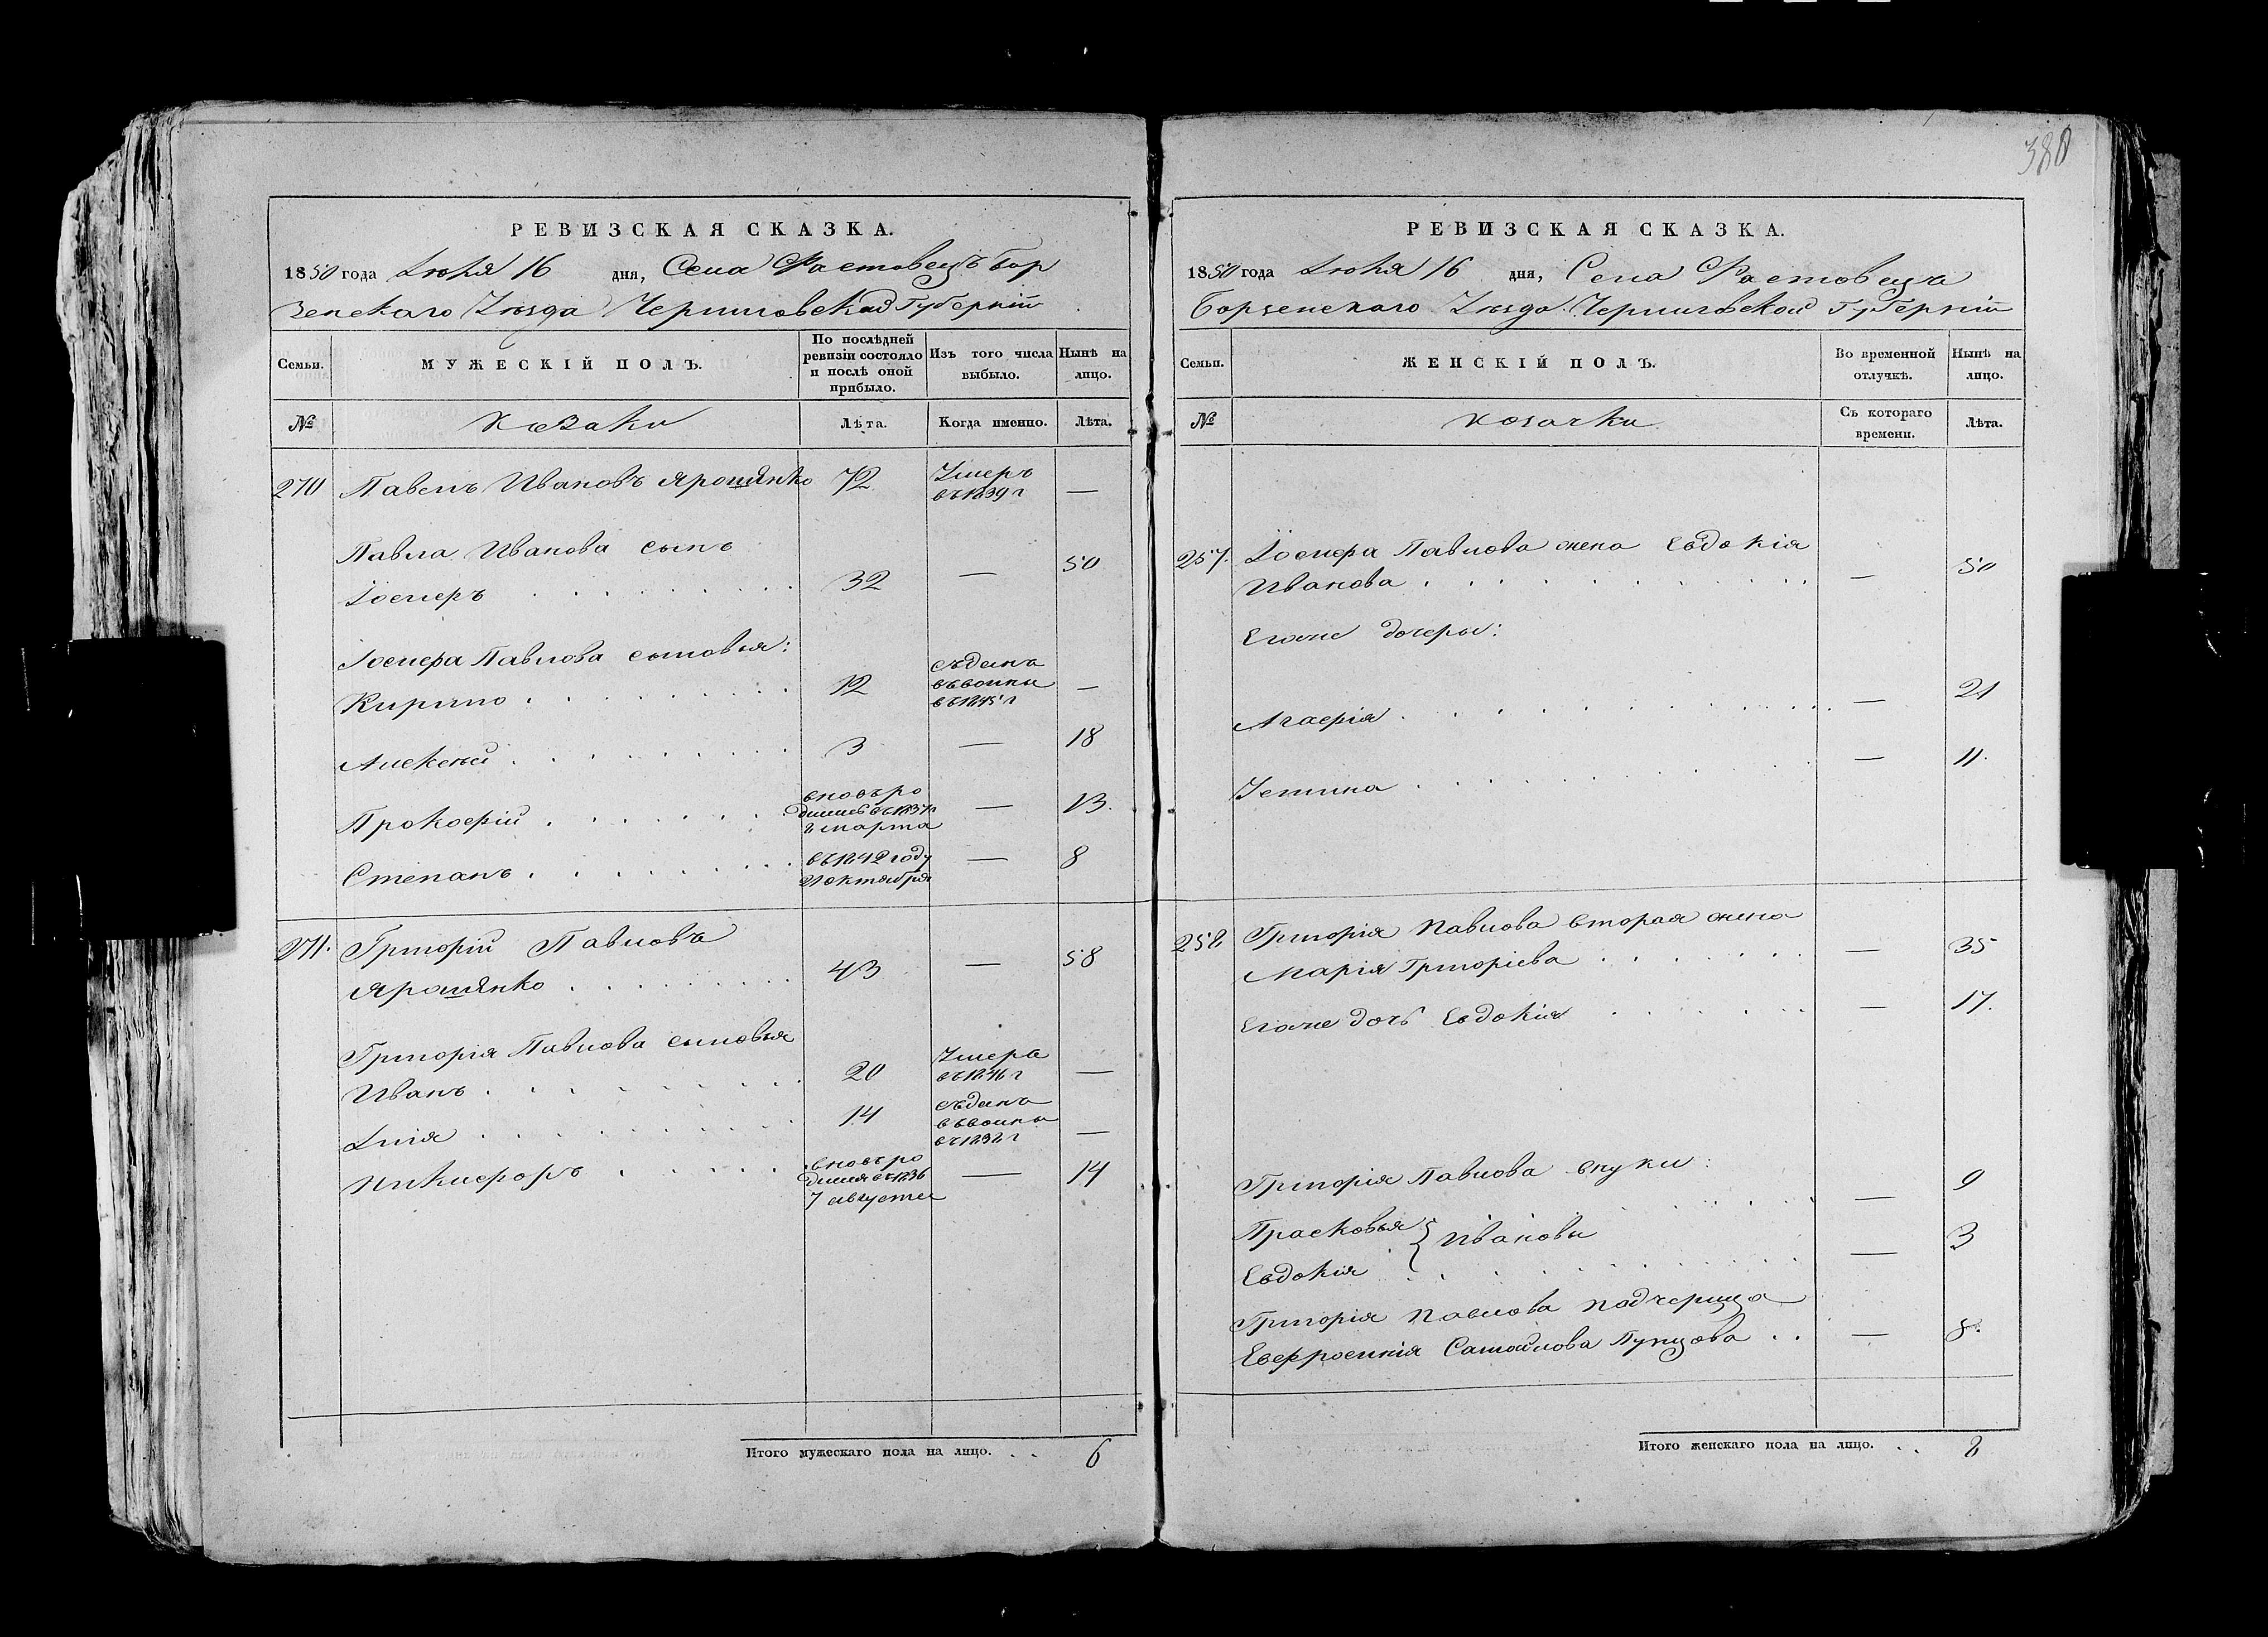 380
РЕВИЗСКАЯ СКАЗКА.
1850 года Июня 16 дня, Села Фастовецъ Бор
зенскаго Уѣзда Черниговской Губерніи
Семьи.
МУЖЕСКІЙ ПОЛЪ.
По послѣдней ревизіи состояло и послѣ оной прибыло.
Изъ того числа выбыло.
Нынѣ на лицо.
№
Козаки
Лѣта.
Когда именно.
Лѣта.
270 Павелъ Ивановъ Ярошенко 72 Умеръ —
въ 1839 г
Павла Иванова сынъ 50
Іосифъ 32 —
Іосифа Павлова сыновья:
Кирило 12 съдан
въ
въ 1845 г —
Алексѣй 3 — 18
Прокофій вновь ро
дился въ 1837 г
марта — 13.
Степанъ въ 1842 году
21 октября — 8
271. Григорій Павловъ
Ярошенко 43 — 58
Григорія Павлова сыновья
Иванъ 20 Умеръ
въ 1846 г —
Илія 14 съдан
въ
въ г —
Никифоръ вновь ро
дился въ 1836
7 августа — 14
Итого мужескаго пола на лицо. . . 6
РЕВИЗСКАЯ СКАЗКА.
1850 года Июня 16 дня, Села Фастовецъ
Борзенскаго Уѣзда Черниговской Губерніи
Семьи.
ЖЕНСКІЙ ПОЛЪ.
Во временной отлучкѣ.
Нынѣ на лицо.
№
козачки
Съ котораго времени.
Лѣта.
257. Іосифа Павлова жена Евдокія
Иванова — 50
Егоже дочеры:
Агафія — 21
Устина — 11.
258 Григорія Павлова вторая жена
Марія Григоріева — 35
Егоже дочь Евдокія — 17.
Григорія Павлова внуки:
Прасковья } Ивановы — 9
Евдокія — 3
Григорія Павлова подчерица
Евфросинія Самойлова — 8.
Итого женскаго пола на лицо. . . 8